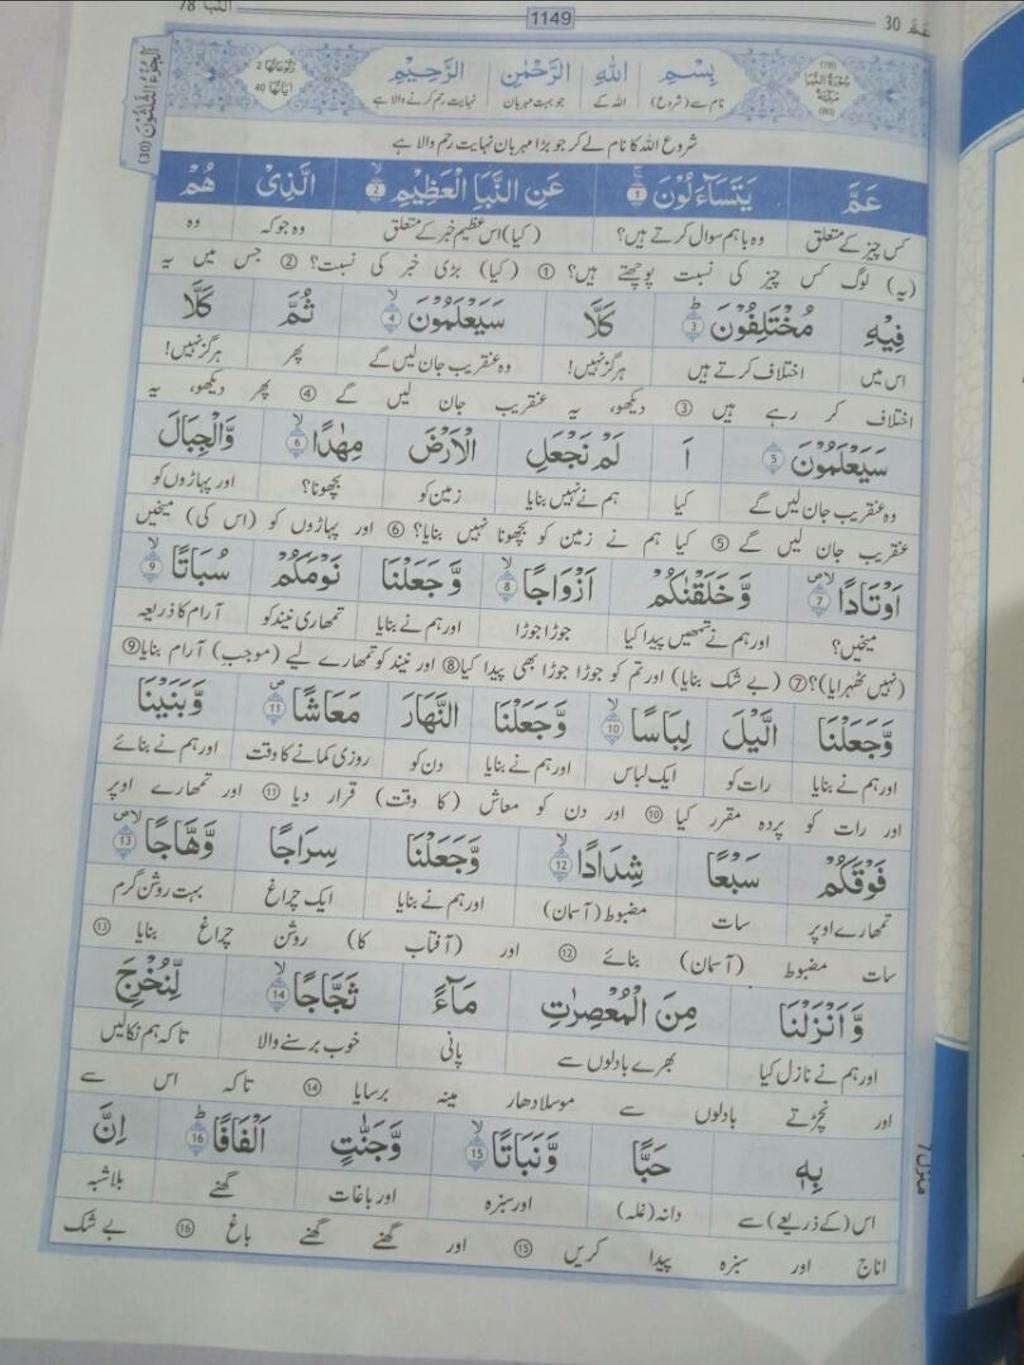 النبا 78
1149
عَمَّ 30
اَلْجُزْءُ الثَّلٰثُوْنَ (30)
رُكُوْعَاتُهَا 2
اٰيَاتُهَا 40
بِسْمِ اللّٰهِ الرَّحْمٰنِ الرَّحِيْمِ
نام سے (شروع) اللہ کے جو بہت مہربان نہایت رحم کرنے والا ہے
(78) سُوْرَةُ النَّبَا مَكِّيَّةٌ (80)
شروع اللہ کا نام لے کر جو بڑا مہربان نہایت رحم والا ہے
عَمَّ يَتَسَآءَلُوْنَ 1 عَنِ النَّبَاِ الْعَظِيْمِ 2 الَّذِىْ هُمْ
کس چیز کے متعلق وہ باہم سوال کرتے ہیں؟ (کیا) اس عظیم خبر کے متعلق وہ جو کہ وہ
(یہ) لوگ کس چیز کی نسبت پوچھتے ہیں؟ ① (کیا) بڑی خبر کی نسبت؟ ② جس میں یہ
فِيْهِ مُخْتَلِفُوْنَ 3 كَلَّا سَيَعْلَمُوْنَ 4 ثُمَّ كَلَّا
اس میں اختلاف کرتے ہیں ہرگز نہیں! وہ عنقریب جان لیں گے پھر ہرگز نہیں!
اختلاف کر رہے ہیں ③ دیکھو، یہ عنقریب جان لیں گے ④ پھر دیکھو، یہ
سَيَعْلَمُوْنَ 5 اَ لَمْ نَجْعَلِ الْاَرْضَ مِهٰدًا 6 وَّالْجِبَالَ
وہ عنقریب جان لیں گے کیا ہم نے نہیں بنایا زمین کو بچھونا؟ اور پہاڑوں کو
عنقریب جان لیں گے ⑤ کیا ہم نے زمین کو بچھونا نہیں بنایا؟ ⑥ اور پہاڑوں کو (اس کی) میخیں
اَوْتَادًا 7 وَّخَلَقْنٰكُمْ اَزْوَاجًا 8 وَّجَعَلْنَا نَوْمَكُمْ سُبَاتًا 9
میخیں؟ اور ہم نے تمھیں پیدا کیا جوڑا جوڑا اور ہم نے بنایا تمھاری نیند کو آرام کا ذریعہ
(نہیں ٹھہرایا)؟ ⑦ (بے شک بنایا) اور تم کو جوڑا جوڑا بھی پیدا کیا ⑧ اور نیند کو تمھارے لیے (موجب) آرام بنایا ⑨
وَّجَعَلْنَا الَّيْلَ لِبَاسًا 10 وَّجَعَلْنَا النَّهَارَ مَعَاشًا 11 وَّبَنَيْنَا
اور ہم نے بنایا رات کو ایک لباس اور ہم نے بنایا دن کو روزی کمانے کا وقت اور ہم نے بنائے
اور رات کو پردہ مقرر کیا ⑩ اور دن کو معاش (کا وقت) قرار دیا ⑪ اور تمھارے اوپر
فَوْقَكُمْ سَبْعًا شِدَادًا 12 وَّجَعَلْنَا سِرَاجًا وَّهَّاجًا 13
تمھارے اوپر سات مضبوط (آسمان) اور ہم نے بنایا ایک چراغ بہت روشن گرم
سات مضبوط (آسمان) بنائے ⑫ اور (آفتاب کا) روشن چراغ بنایا ⑬
وَّاَنْزَلْنَا مِنَ الْمُعْصِرٰتِ مَآءً ثَجَّاجًا 14 لِّنُخْرِجَ
اور ہم نے نازل کیا بھرے بادلوں سے پانی خوب برسنے والا تاکہ ہم نکالیں
اور نچڑتے بادلوں سے موسلادھار مینہ برسایا ⑭ تاکہ اس سے
بِهٖ حَبًّا وَّنَبَاتًا 15 وَّجَنّٰتٍ اَلْفَافًا 16 اِنَّ
اس (کے ذریعے) سے دانہ (غلہ) اور سبزہ اور باغات گھنے بلاشبہ
اناج اور سبزہ پیدا کریں ⑮ اور گھنے گھنے باغ ⑯ بے شک
منزل 7